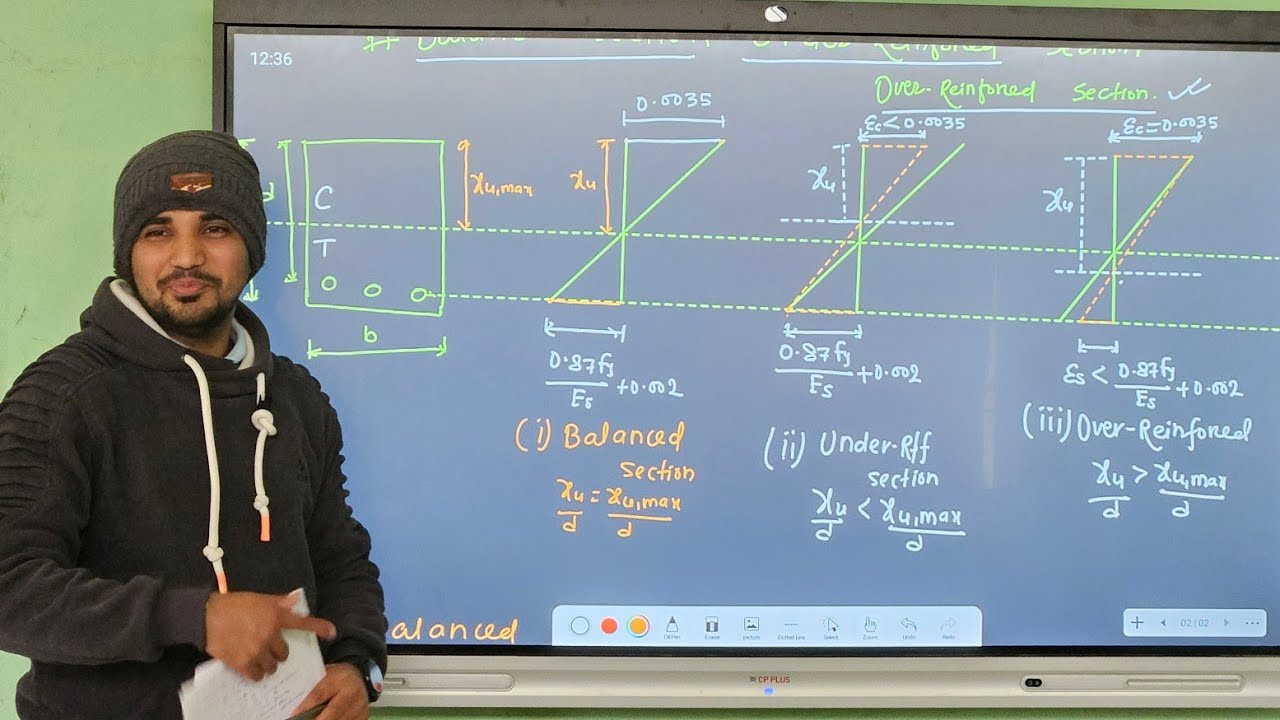 12:36
# Balance Section Under Reinforced Section
Over-Reinforced Section. ✓
0.0035
εc < 0.0035
εc = 0.0035
d
C
T
xu,max
xu
xu
xu
b
0.87fy/Es + 0.002
0.87fy/Es + 0.002
εs < 0.87fy/Es + 0.002
(i) Balanced
section
xu/d = xu,max/d
(ii) Under-Rff
section
xu/d < xu,max/d
(iii) Over-Reinforced
xu/d > xu,max/d
alanced
Oil Pen
Eraser
picture
Dotted Line
Select
Zoom
Undo
Redo
02 | 02
CP PLUS